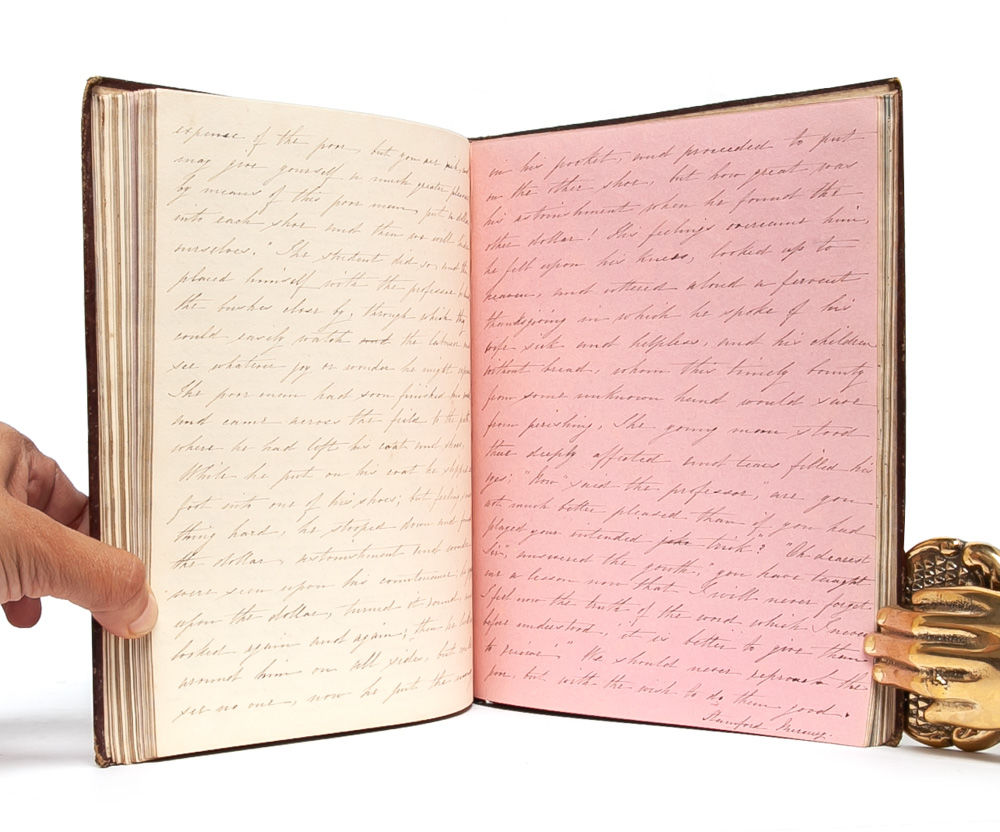 expense of the poor, but you are rich, and
may give yourself a much greater pleasure
by means of this poor man, put a dollar
into each shoe and then we will hide
ourselves." The student did so, and then
placed himself with the professor behind
the bushes close by, through which they
could easily watch and the laborer and
see whatever joy or wonder he might express
The poor man had soon finished his work
and came across the field to the path
where he had left his coat and shoes.
While he put on his coat he slipped
foot into one of his shoes; but feeling some
thing hard, he stooped down and found
the dollar, astonishment and wonder
were seen upon his countenance; he gazed
upon the dollar, turned it round, and
looked again and again; then he looked
around him on all sides, but could
see no one, now he put the money
in his pocket, and proceeded to put
on the other shoe, but how great was
his astonishment when he found the
other dollar! His feelings overcame him,
he fell upon his knees, looked up to
heaven, and uttered aloud a fervent
thanksgiving in which he spoke of his
wife sick and helpless, and his children
without bread, whom this timely bounty
from some unknown hand would save
from perishing, The young man stood
there deeply affected and tears filled his
eyes; "Now" said the professor, "are you
not much better pleased than if you had
played your intended trick? "Oh dearest
Sir," answered the youth, "you have taught
me a lesson now that I will never forget.
I feel now the truth of the word which I never
before understood, "it is better to give than
to receive"." We should never reproach the
poor, but with the wish to do them good.
Stamford Mercury.